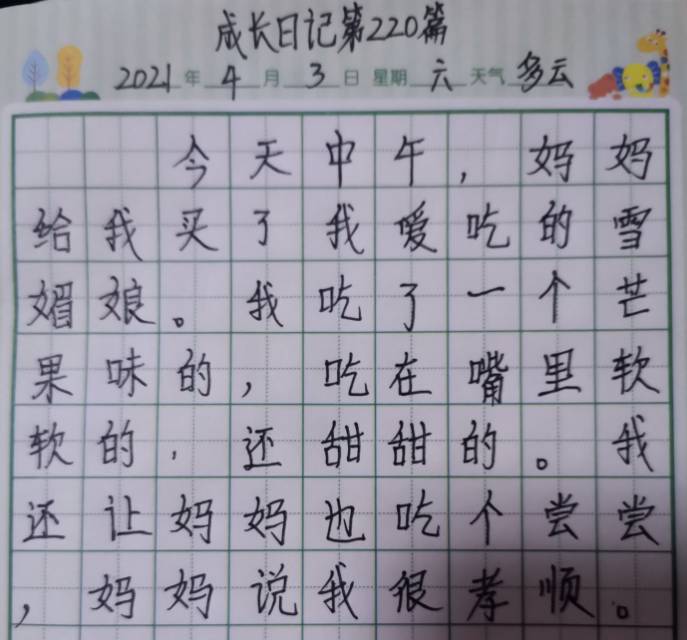 成长日记第220篇
2021年4月3日 星期六 天气多云
今天中午，妈妈
给我买了我爱吃的雪
媚娘。我吃了一个芒
果味的，吃在嘴里软
软的，还甜甜的。我
还让妈妈也吃个尝尝
，妈妈说我很孝顺。